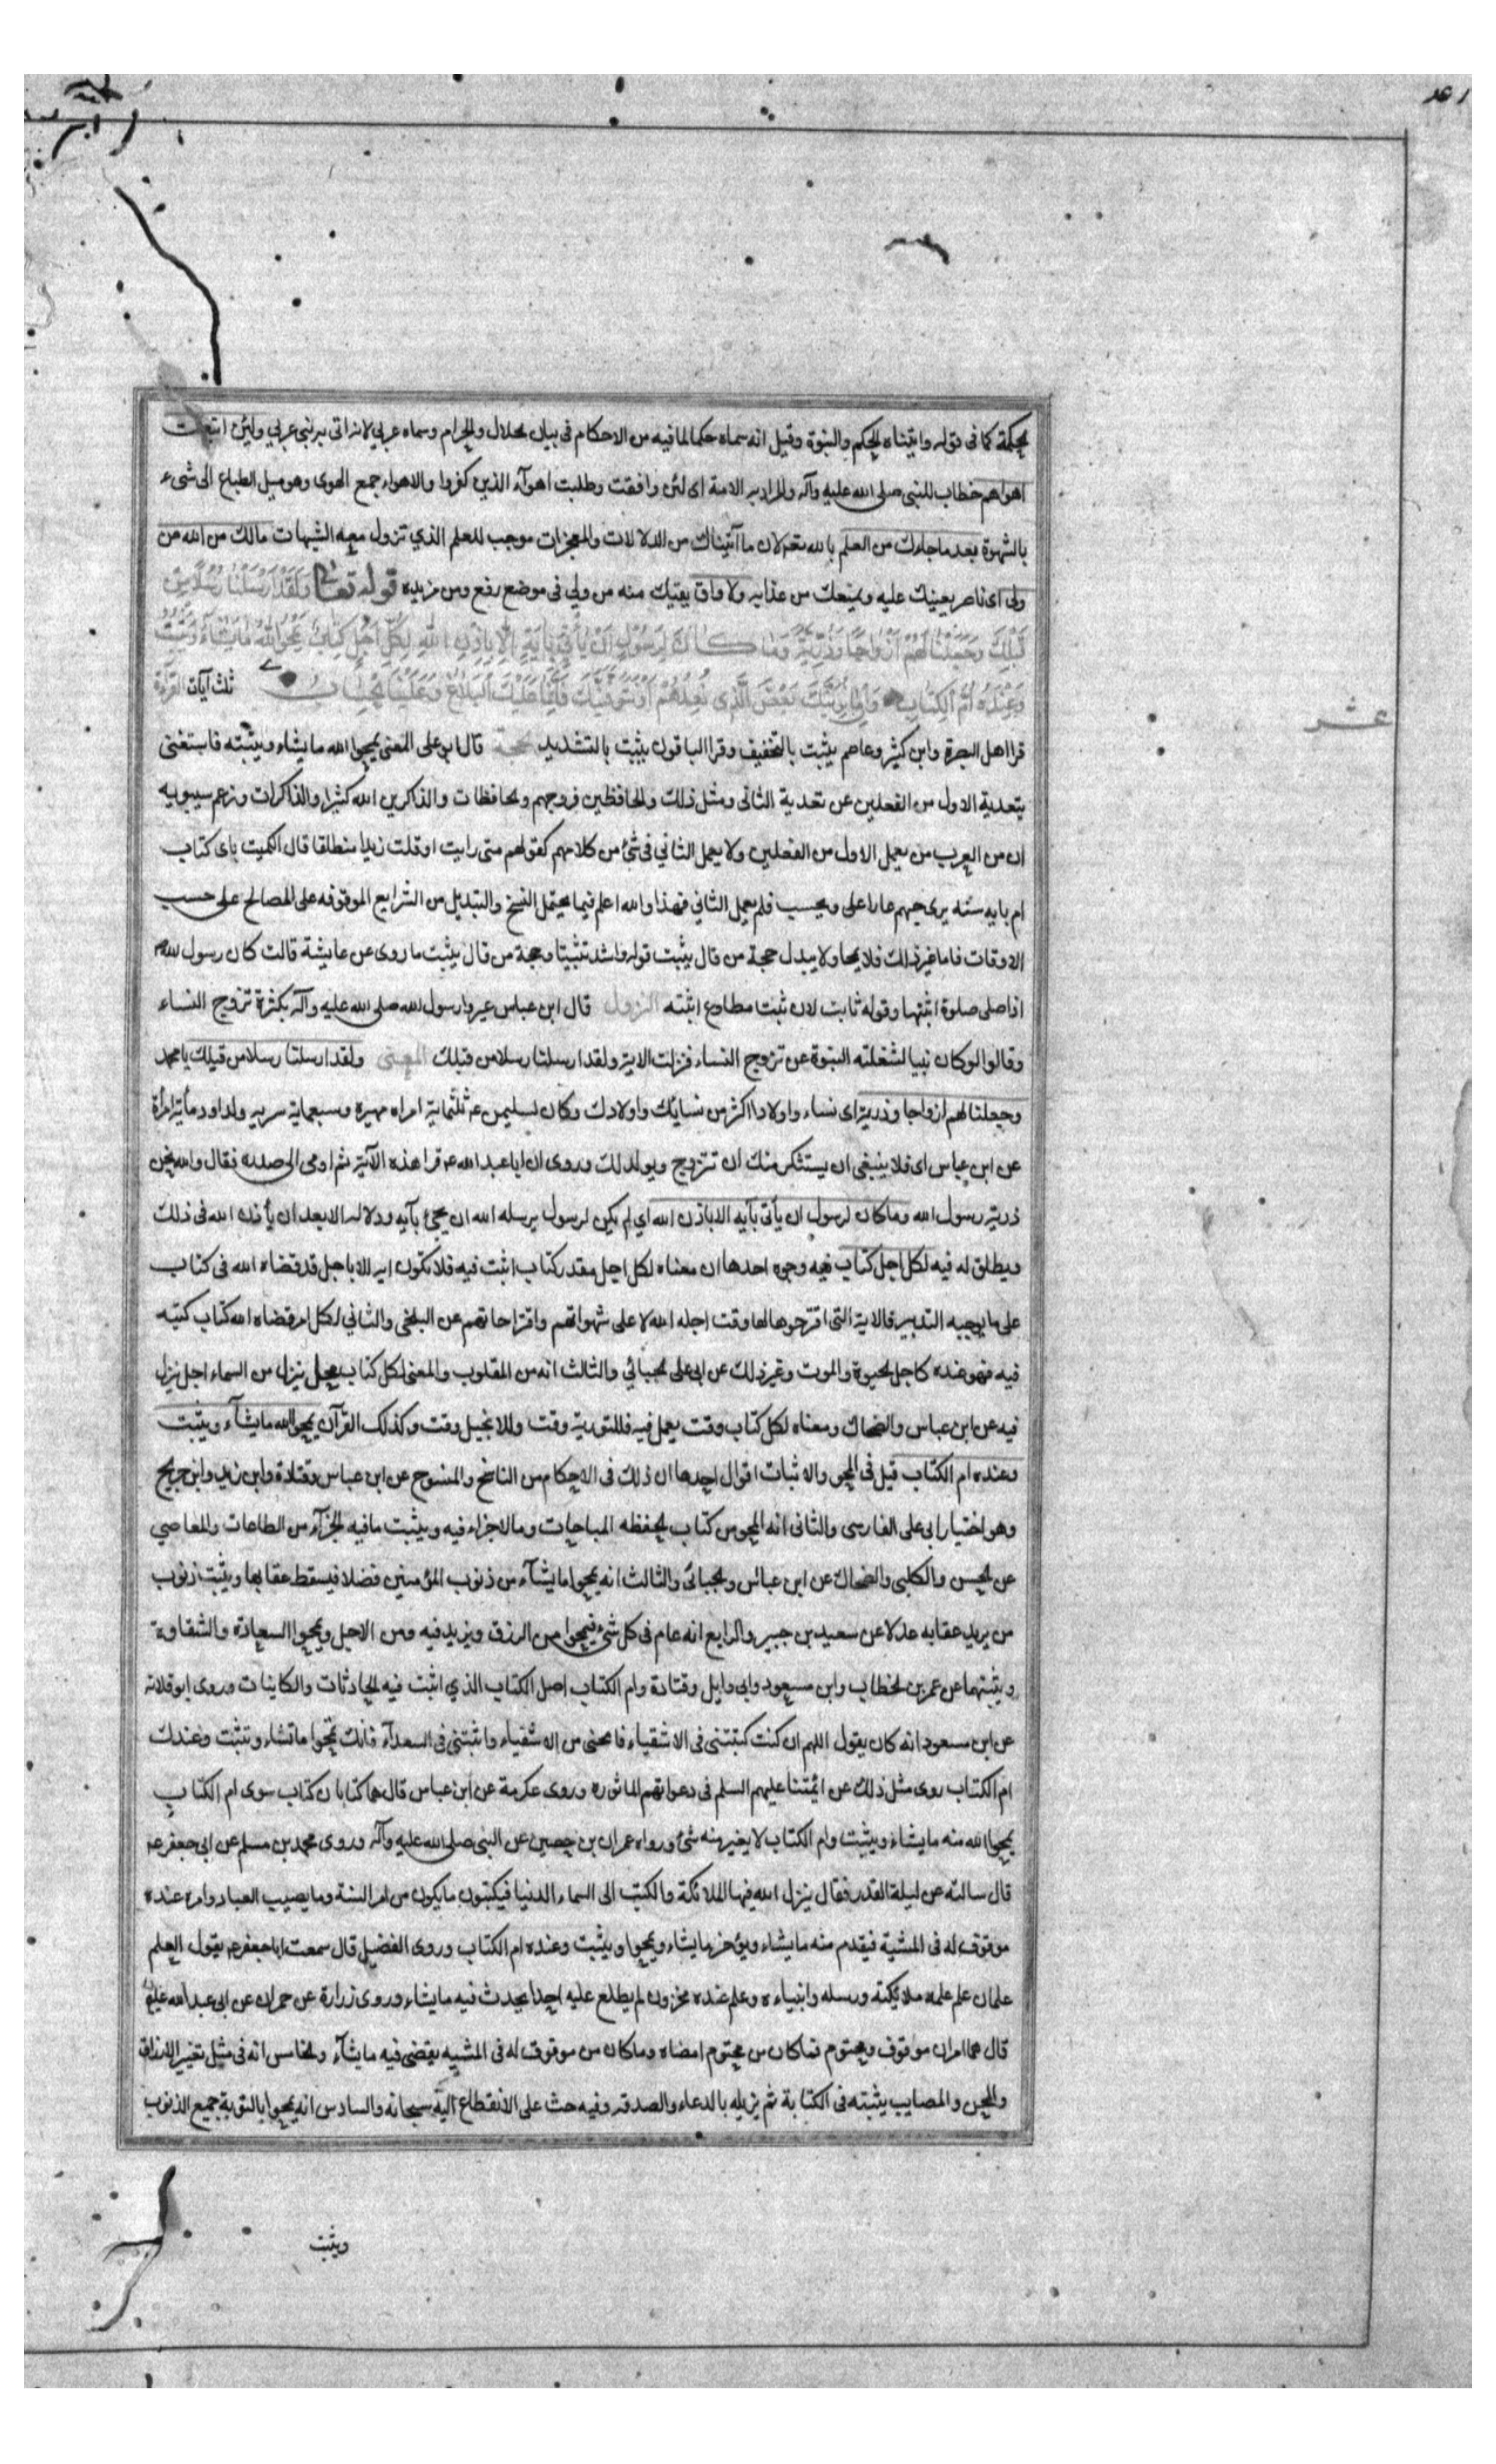 الحكمة كما فى قوله واتيناه الحكم والنبوة وقيل انه سماه حكما لما فيه من الاحكام فى بيان الحلال والحرام وسماه عربي لانه اتى به نبي عربي ولئن اتبعت
اهواهم خطاب للنبى صلى الله عليه وآله والمراد به الامة اى لئن وافقت وطلبت اهوآء الذين كفروا والاهواء جمع الهوى وهو ميل الطباع الى شىء
بالشهوة بعد ما جاءك من العلم بالله تعالى لان ما آتيناك من الدلالات والمعجزات موجب للعلم الذي تزول معه الشبهات مالك من الله من
ولى اى ناصر يعينك عليه ويمنعك من عذابه ولا واق يقيك منه من ولي فى موضع رفع ومن مزيده قوله تعالى وَلَقَدْ اَرْسَلْنَا رُسُلًا مِنْ
قَبْلِكَ وَجَعَلْنَا لَهُمْ اَزْوَاجًا وَذُرِّيَّةً وَمَا كَانَ لِرَسُولٍ اَنْ يَأْتِيَ بِآيَةٍ اِلَّا بِاِذْنِ اللهِ لِكُلِّ اَجَلٍ كِتَابٌ يَمْحُوا اللهُ مَا يَشَاءُ وَيُثْبِتُ
وَعِنْدَهُ اُمُّ الْكِتَابِ وَاِمَّا نُرِيَنَّكَ بَعْضَ الَّذِي نَعِدُهُمْ اَوْ نَتَوَفَّيَنَّكَ فَاِنَّمَا عَلَيْكَ الْبَلَاغُ وَعَلَيْنَا الْحِسَابُ ثلث آيات القراءة
عشر
قرا اهل البصرة وابن كثير وعاصم يثبت بالتخفيف وقرا الباقون يثبت بالتشديد الحجة قال ابو على المعنى يمحوا الله ما يشاء ويثبته فاستغنى
بتعدية الاول من الفعلين عن تعدية الثانى ومثل ذلك والحافظين فروجهم والحافظات والذاكرين الله كثيرا والذاكرات وزعم سيبويه
ان من العرب من يعمل الاول من الفعلين ولا يعمل الثاني فى شئ من كلامهم كقولهم متى رايت او قلت زيدا منطلقا قال الكميت باى كتاب
ام بايه سنة يرى حبهم عارا على ويحسب فلم يعمل الثاني فهذا والله اعلم فيما يحتمل النسخ والتبديل من الشرايع الموقوفه على المصالح على حسب
الاوقات فاما غير ذلك فلا يمحا ولا يبدل حجة من قال يثبت قوله واشد تثبيتا وحجة من قال يثبت ما روى عن عايشة قالت كان رسول الله
اذا صلى صلوة اثبتها وقوله ثابت لان ثبت مطاوع اثبته النزول قال ابن عباس عيروا رسول الله صلى الله عليه وآله بكثرة تزوج النساء
وقالوا لو كان نبيا لشغلته النبوة عن تزوج النساء فنزلت الاية ولقد ارسلنا رسلا من قبلك المعنى ولقد ارسلنا رسلا من قبلك يا محمد
وجعلنا لهم ازواجا وذرية اى نساء واولادا اكثر من نسايك واولادك وكان لسليمن ع ثلثماية امراه مهيرة وسبعماية سريه ولداود مأية امرأة
عن ابن عباس اى فلا ينبغى ان يستنكر منك ان تتزوج ويولد لك وروى ان ابا عبد الله ع قرا هذه الآية ثم اومى الى صدره فقال والله نحن
ذرية رسول الله وما كان لرسول ان يأتى بآيه الا باذن الله اي لم يكن لرسول يرسله الله ان يجئ بآيه ودلاله الا بعد ان يأذن الله فى ذلك
ويطلق له فيه لكل اجل كتاب فيه وجوه احدها ان معناه لكل اجل مقدر كتاب اثبت فيه فلا تكون ايه الا باجل قد قضاه الله فى كتاب
على ما يوجبه التدبير فالاية التى اقترحوها لها وقت اجله الله لا على شهواتهم واقتراحاتهم عن البلخى والثاني لكل امر قضاه الله كتاب كتبه
فيه فهو عنده كاجل الحيوة والموت وغير ذلك عن ابى على الجبائي والثالث انه من المقلوب والمعنى لكل كتاب ينزل من السماء اجل ينزل
فيه عن ابن عباس والضحاك ومعناه لكل كتاب وقت يعمل فيه فللتورية وقت وللانجيل وقت وكذلك القرآن يمحوا الله ما يشآء ويثبت
وعنده ام الكتاب قيل فى المحو والاثبات اقوال احدها ان ذلك فى الاحكام من الناسخ والمنسوخ عن ابن عباس وقتادة وابن زيد وابن جريج
وهو اختيار ابى على الفارسى والثانى انه يمحو من كتاب الحفظه المباحات وما لا جزاء فيه ويثبت ما فيه الجزآء من الطاعات والمعاصي
عن الحسن والكلبى والضحاك عن ابن عباس والجبائى والثالث انه يمحوا ما يشآء من ذنوب المؤمنين فضلا فيسقط عقابها ويثبت ذنوب
من يريد عقابه عدلا عن سعيد بن جبير والرابع انه عام فى كل شئ فيمحوا من الرزق ويزيد فيه ومن الاجل ويمحوا السعادة والشقاوة
ويثبتهما عن عمر بن الخطاب وابن مسعود وابى وايل وقتادة وام الكتاب اصل الكتاب الذي اثبت فيه الحادثات والكاينات وروى ابو قلابه
عن ابن مسعود انه كان يقول اللهم ان كنت كتبتنى فى الاشقياء فامحنى من الاشقياء واثبتنى فى السعدآء فانك تمحوا ما تشاء وتثبت وعندك
ام الكتاب روى مثل ذلك عن ائمتنا عليهم السلم فى دعواتهم الماثوره وروى عكرمة عن ابن عباس قال هما كتابان كتاب سوى ام الكتاب
يمحوا الله منه ما يشاء ويثبت وام الكتاب لا يغير منه شئ ورواه عمران بن حصين عن النبى صلى الله عليه وآله وروى محمد بن مسلم عن ابى جعفر ع
قال سالته عن ليلة القدر فقال ينزل الله فيها الملائكة والكتبة الى السماء الدنيا فيكتبون ما يكون من امر السنة وما يصيب العباد وامره عنده
موقوف له فى المشية فيقدم منه ما يشاء ويؤخر ما يشاء ويمحوا ويثبت وعنده ام الكتاب وروى الفضيل قال سمعت ابا جعفر ع يقول العلم
علمان علم علمه ملائكته ورسله وانبياءه وعلم عنده مخزون لم يطلع عليه احدا يحدث فيه ما يشاء وروى زرارة عن حمران عن ابى عبد الله عليه
قال هما امران موقوف ومحتوم فما كان من محتوم امضاه وما كان من موقوف له فى المشيه يقضى فيه ما يشآء والخامس انه فى مثل تغير الارزاق
والمحن والمصايب يثبته فى الكتابة ثم يزيله بالدعاء والصدقه وفيه حث على الانقطاع اليه سبحانه والسادس انه يمحوا بالتوبة جميع الذنوب
ويثبت